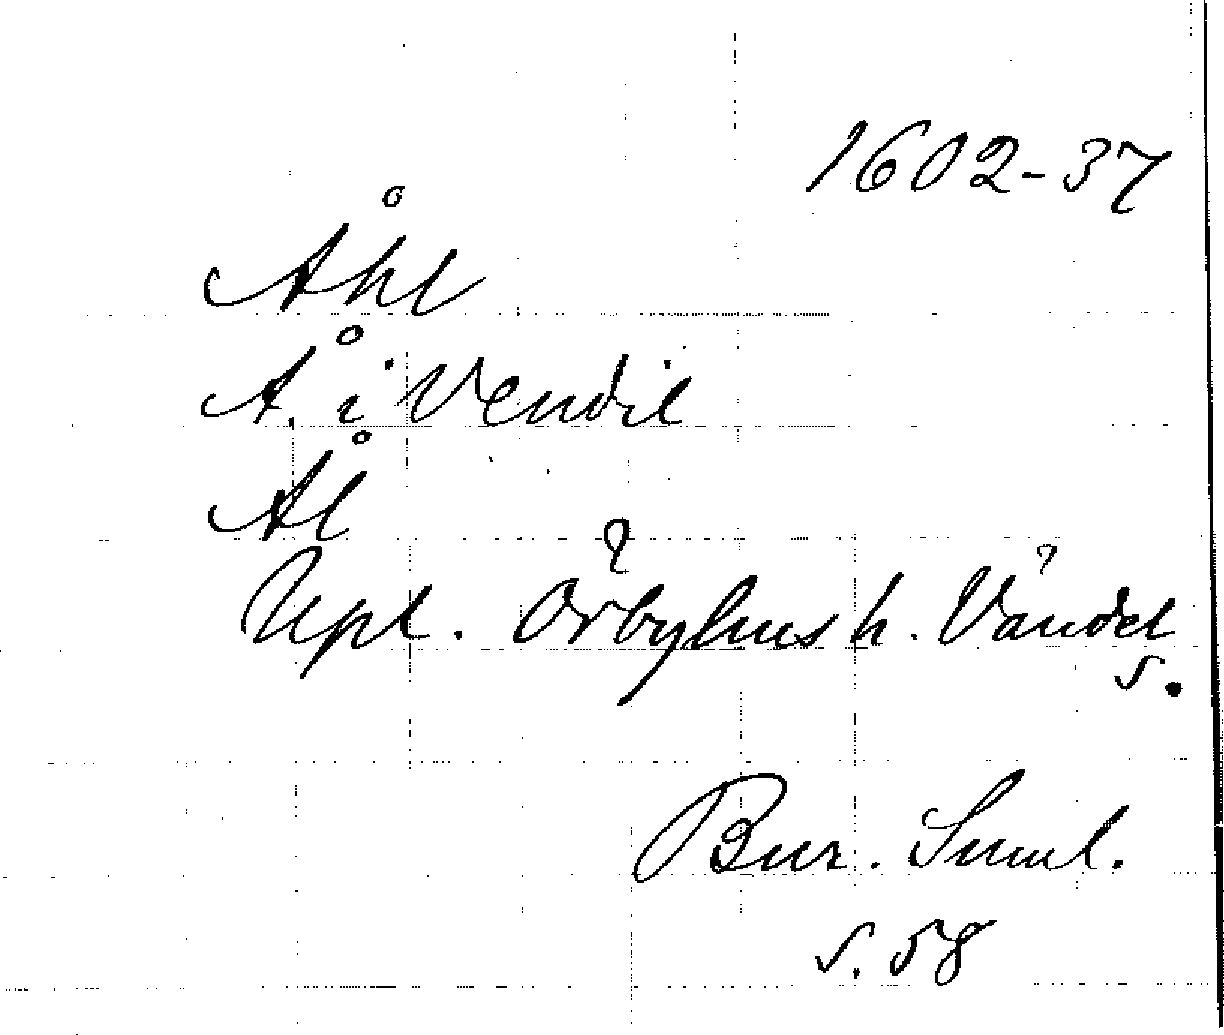 1602-37
Åhl
Å. i Vendil
Ål
Upl. Örbyhus h. Vändel
s.
Bur. Suml.
s. 58